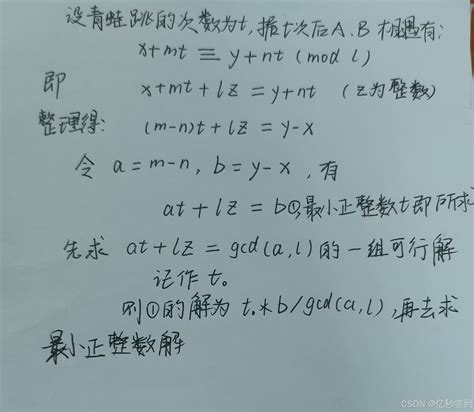 设青蛙跳的次数为t,据t次后A、B相遇有:
x+mt ≡ y+nt (mod l)
即 x+mt+lz = y+nt (z为整数)
整理得: (m-n)t+lz = y-x
令 a=m-n, b=y-x ,有
at+lz=b①,最小正整数t即所求
先求 at+lz=gcd(a,l)的一组可行解
记作 t。
则①的解为 t。*b/gcd(a,l),再去求
最小正整数解
CSDN @亿秒签到